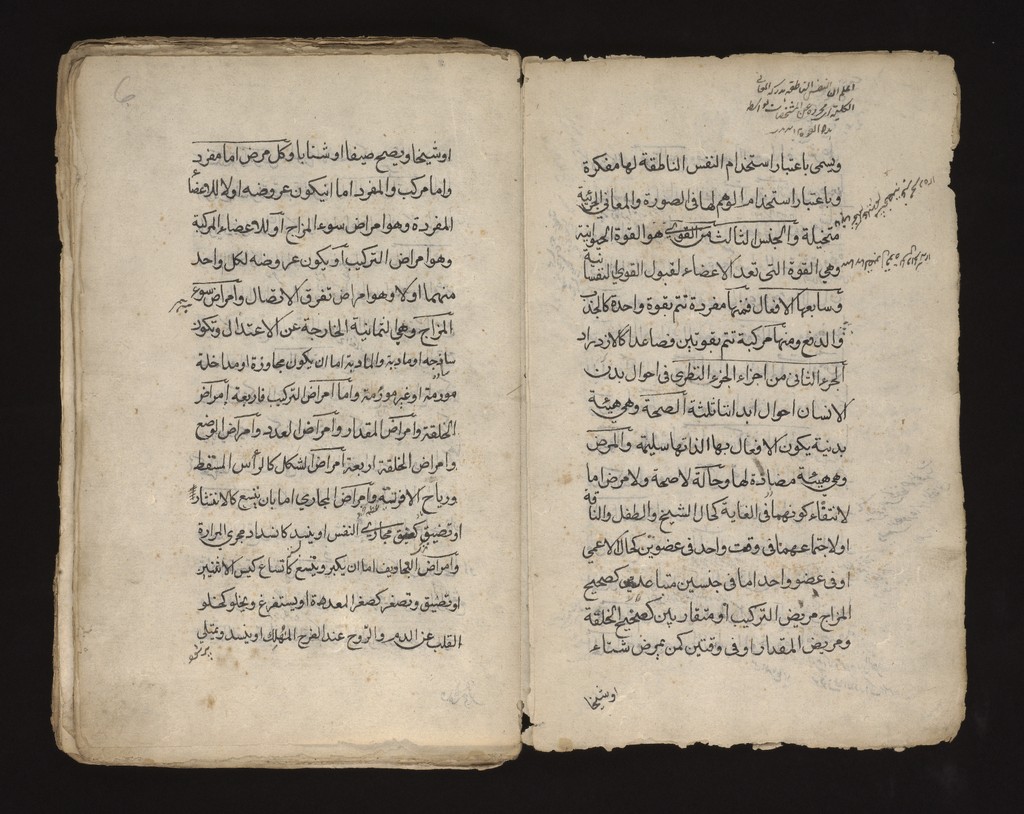 اعلم ان النفس الناطقة مدركة للمعانى
الكلية
ويسمى باعتبار استخدام النفس الناطقة لها مفكرة
وباعتبار استخدام الوهم لها فى الصورة والمعانى الجزئية
متخيلة والجنس الثالث من القوى هو القوة الحيوانية
وهى القوة التى تعد الاعضاء لقبول القوى النفسانية
وسابعها الافعال فمنها مفردة تتم بقوة واحدة كالجذب
والدفع ومنها مركبة تتم بقوتين فصاعدا كالازدراد
الجزء الثانى من اجزاء الجزء النظرى فى احوال بدن
الانسان احوال ابداننا ثلثة الصحة وهى هيئة
بدنية يكون الافعال بها لذاتها سليمة والمرض
وهو هيئة مضادة لها وحالة لاصحة ولا مرض اما
لانتفاء كونهما فى الغاية كحال الشيخ والطفل والناقة
اولاجتماعهما فى وقت واحد فى عضوين كحال الاعمى
اوفى عضو واحد اما فى جنسين متباعدين كصحيح
المزاج مريض التركيب او متقاربين كصحيح الخلقة
ومريض المقدار اوفى وقتين كمن يمرض شتاء
او شيخا
او شيخا ويصح صيفا او شابا وكل مرض اما مفرد
واما مركب والمفرد اما ان يكون عروضه اولا للاعضاء
المفردة وهو امراض سوء المزاج او للاعضاء المركبة
وهو امراض التركيب او يكون عروضه لكل واحد
منهما اولا وهو امراض تفرق الاتصال وامراض سوء
المزاج وهى الثمانية الخارجة عن الاعتدال وتكون
ساذجه او مادية والمادية اما ان يكون مجاورة او مداخلة
مورمة او غير مورمة واما امراض التركيب فاربعة امراض
الخلقة وامراض المقدار وامراض العدد وامراض الوضع
وامراض الخلقة اربعة امراض الشكل كالرأس المسفط
ورياح الافرسة وامراض المجارى اما بان تتسع كالانتشار
او تضيق كضيق مجارى النفس او ينسد كانسداد مجرى المرارة
وامراض التجاويف اما ان يكبر ويتسع كاتساع كيس الانثيين
او تضيق وتصغر كصغر المعدة او يستفرغ ويخلو كخلو
القلب عن الدم والروح عند الفرح المهلك او ينسد ويمتلى